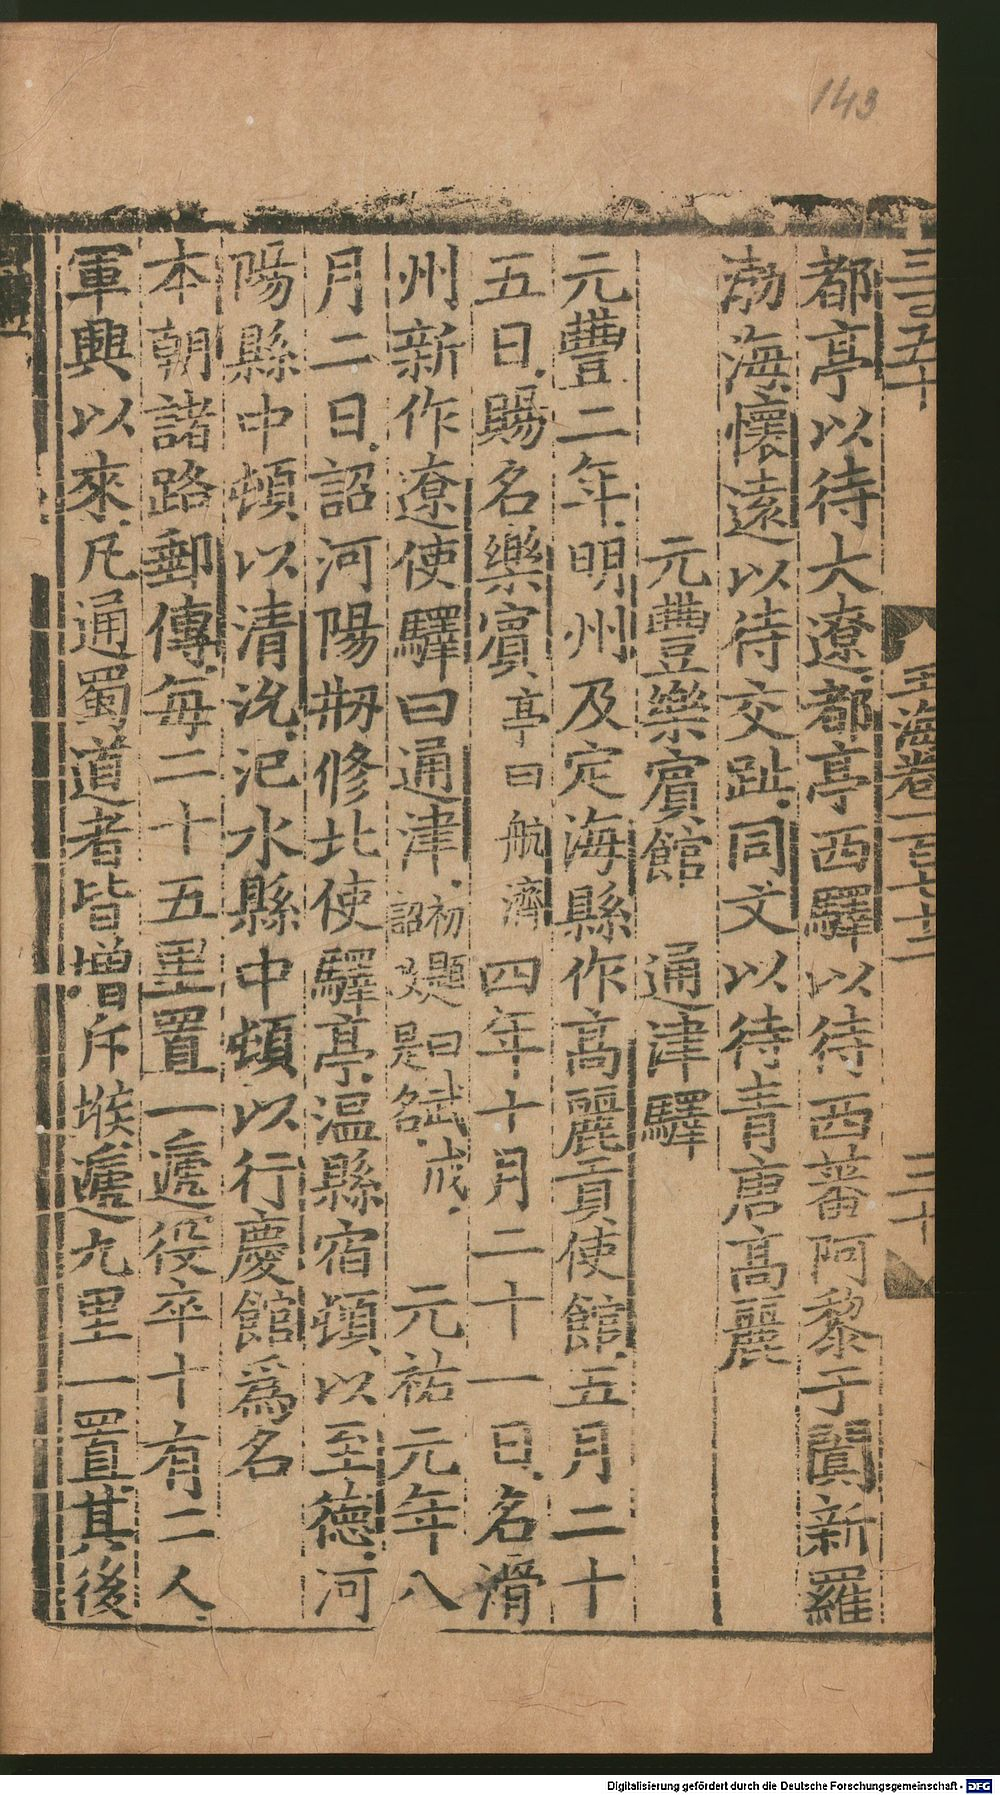 143
三百五十
玉海卷一百七十二
三十
都亭以待大遼都亭西驛以待西蕃阿黎于闐新羅
渤海懷遠以待交趾同文以待青唐高麗
元豐樂賓館 通津驛
元豐二年明州及定海縣作高麗貢使館五月二十
五日賜名樂賓亭曰航濟 四年十月二十一日名滑
州新作遼使驛曰通津初題曰武成詔改是名 元祐元年八
月二日詔河陽剏修北使驛亭溫縣宿頓以至德河
陽縣中頓以清沇汜水縣中頓以行慶館爲名
本朝諸路郵傳每二十五里置一遞役卒十有二人
軍興以來凡通蜀道者皆增斥堠遞九里一置其後
Digitalisierung gefördert durch die Deutsche Forschungsgemeinschaft - DFG